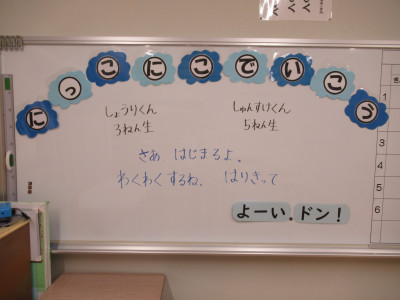 にっこにこでいこう
しょうりくん
3ねん生
しゅんすけくん
5ねん生
さあ はじまるよ。
わくわくするね。 はりきって
よーい.ドン!
1
3
4
5
6